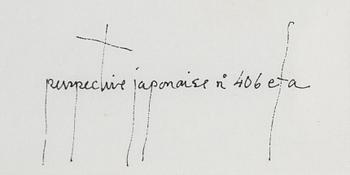 perspective japonaise n° 406 eta